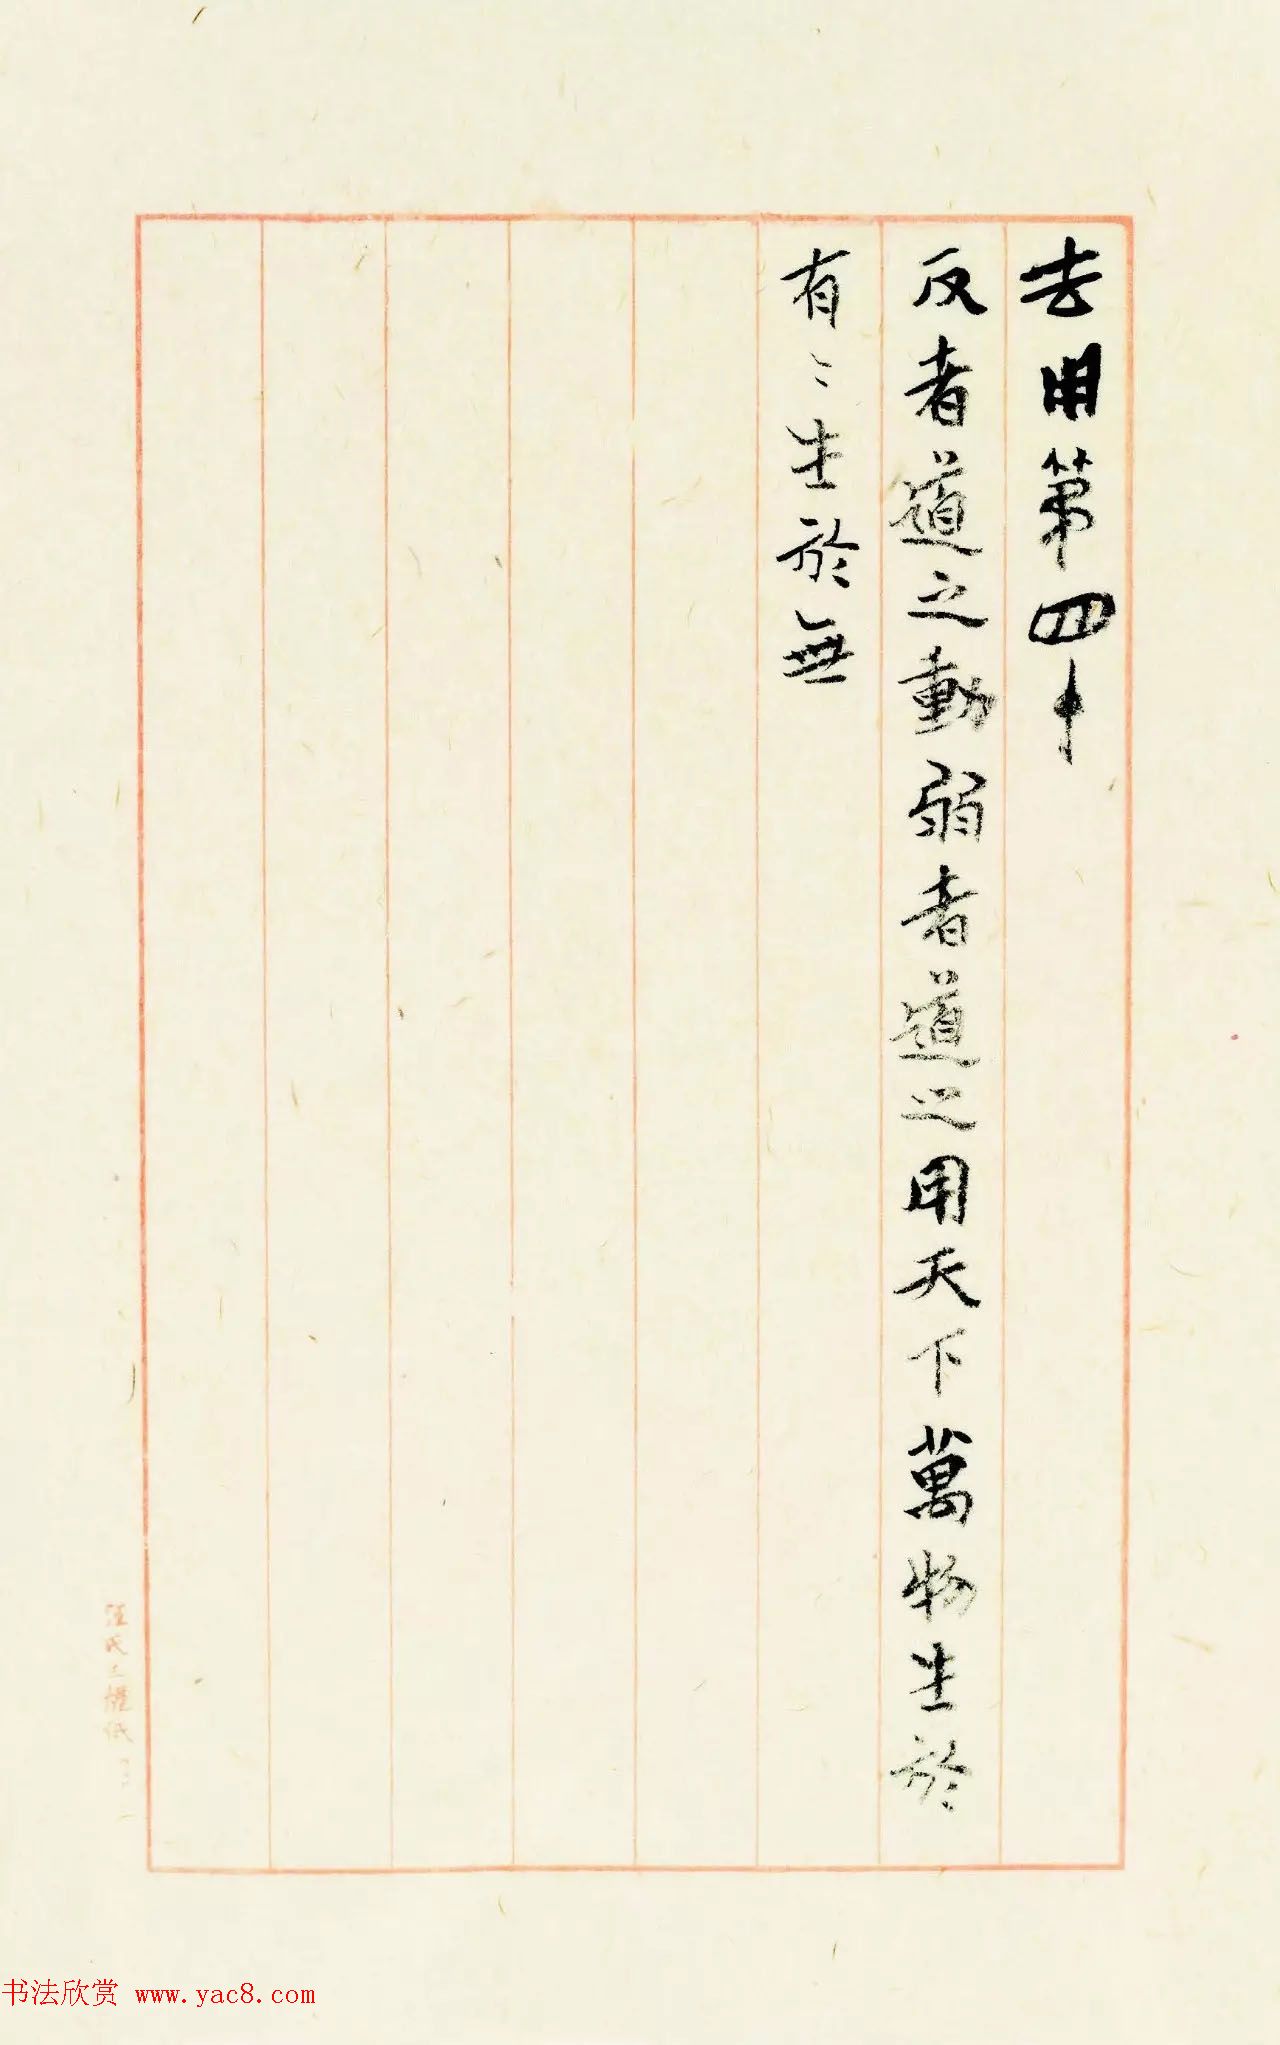 去用第四十
反者道之動弱者道之用天下萬物生於
有〻生於無
书法欣赏 www.yac8.com